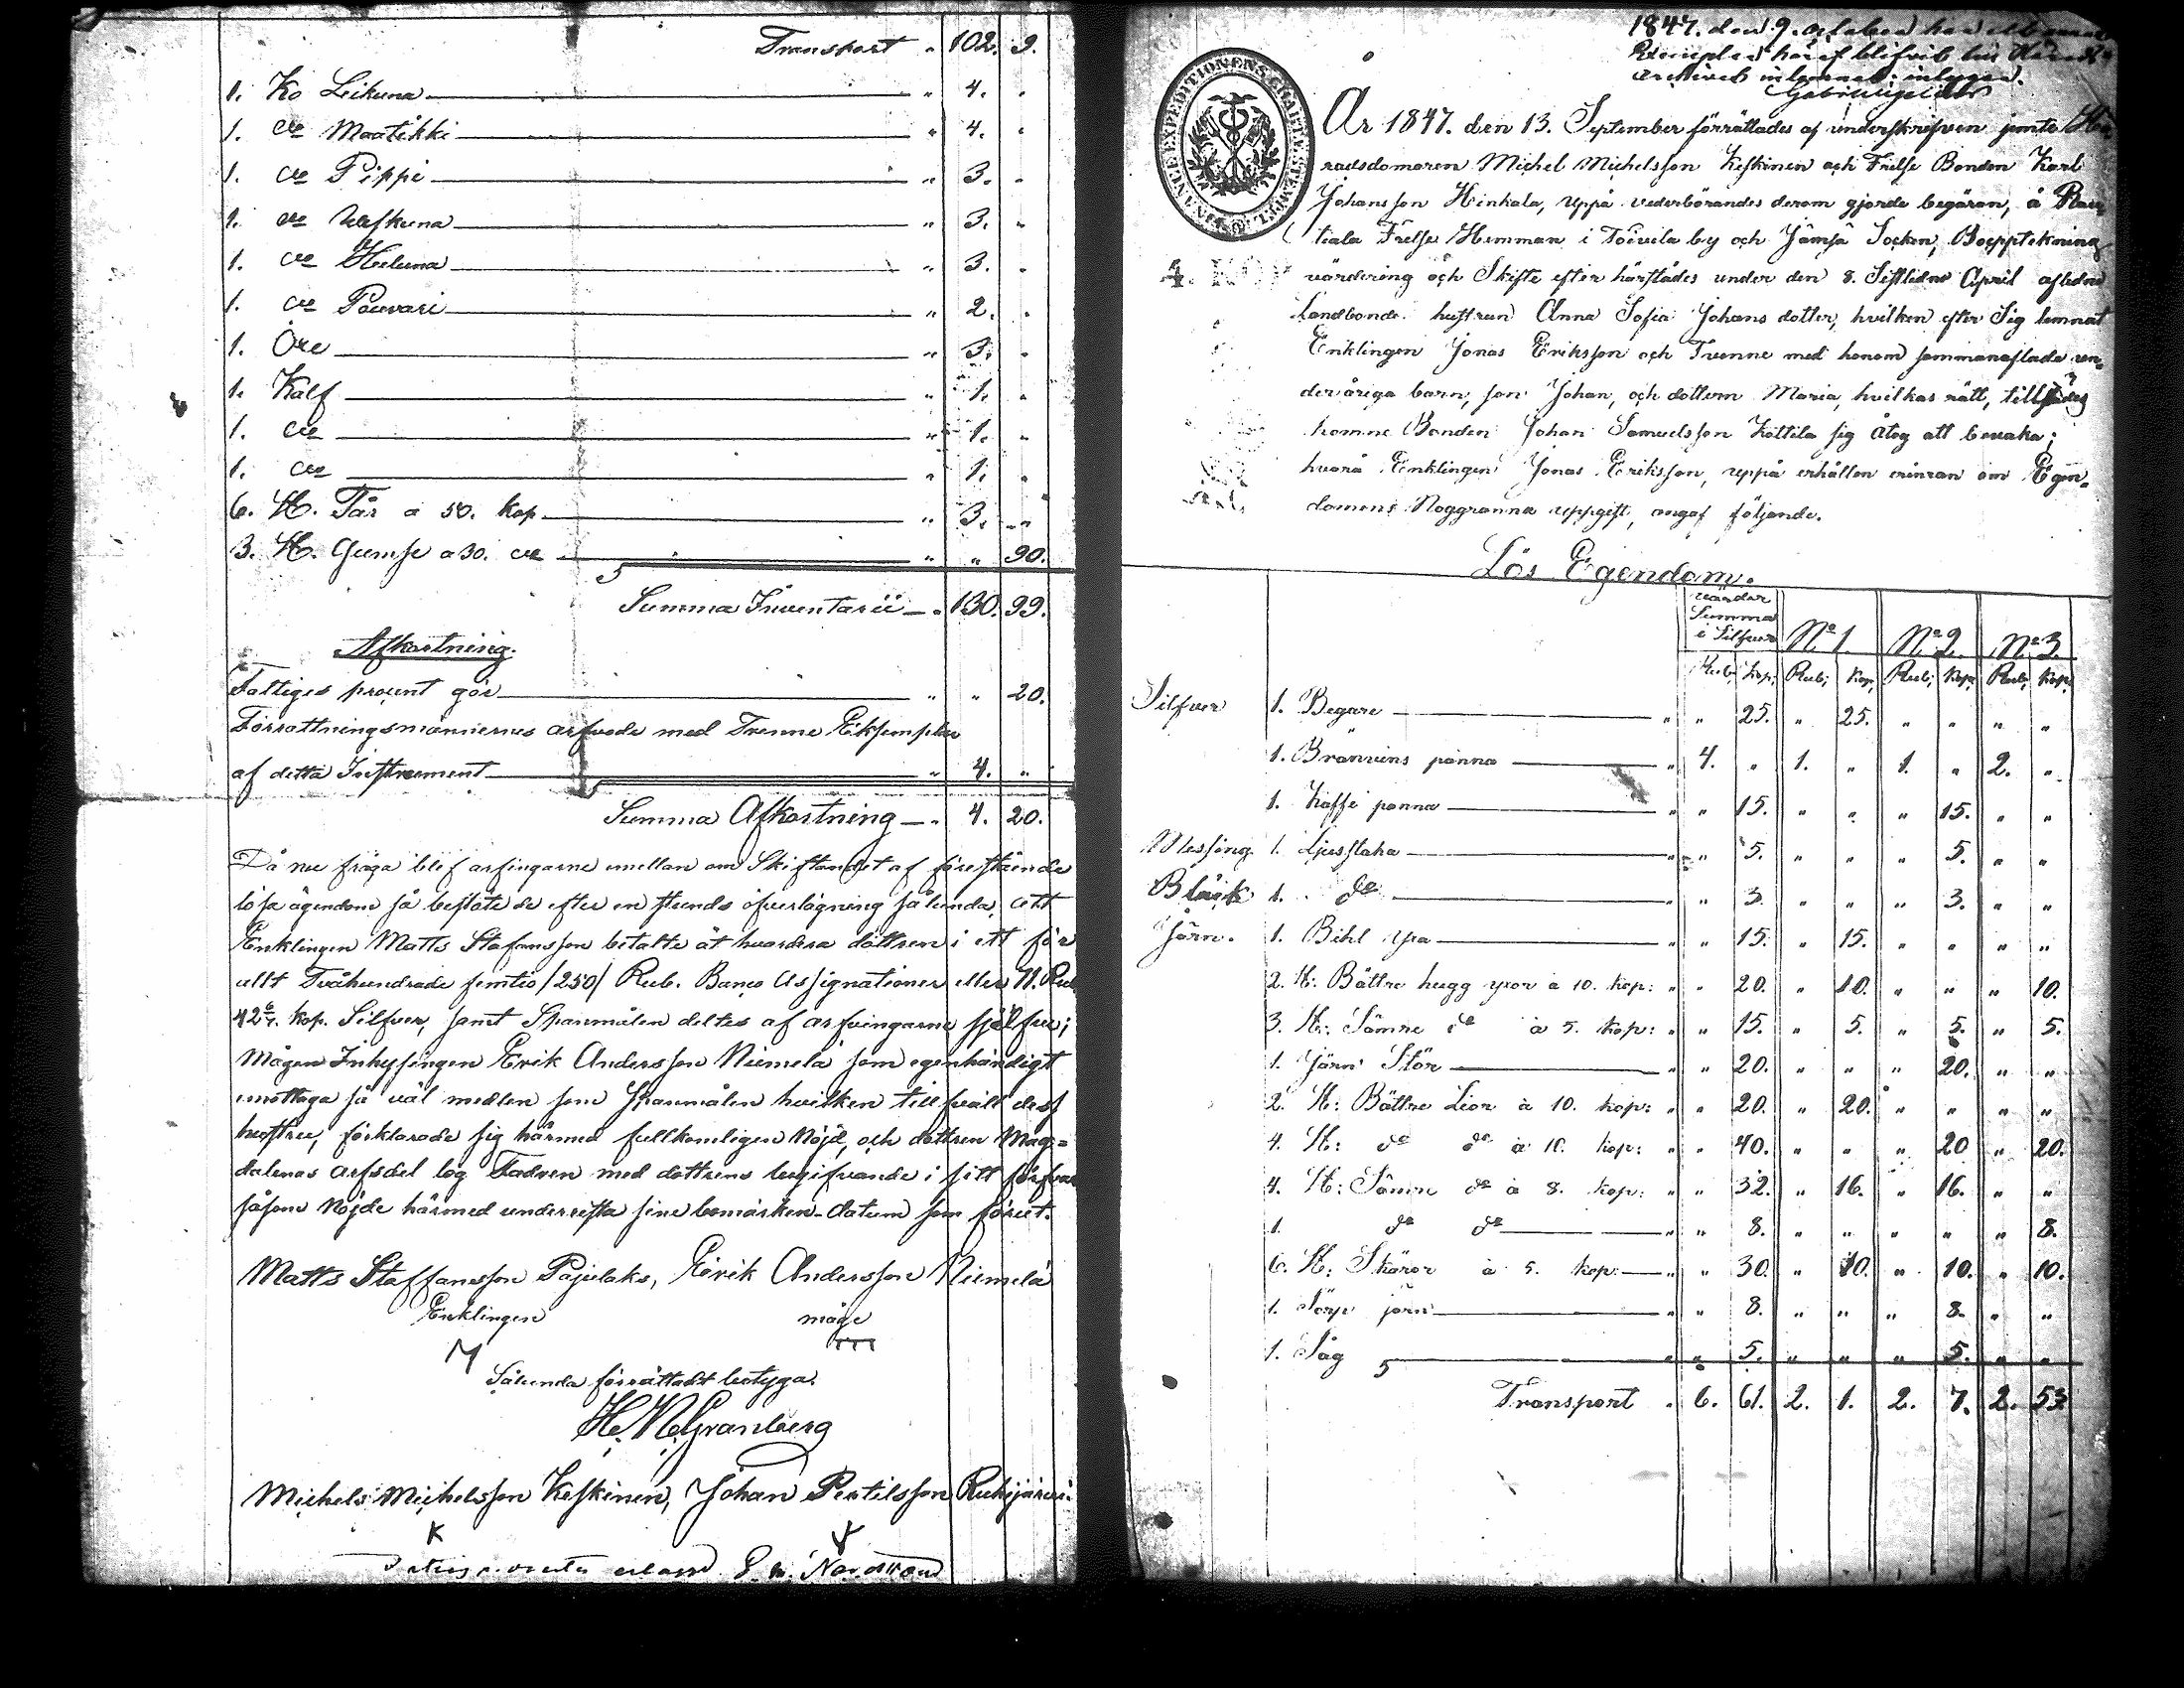 Transport " 102. 9.
1. Ko Leikuna " 4. "
1. do Maatikki " 4. "
1. do Pippi " 3. "
1. do " 3. "
1. do Heluna " 3. "
1. do " 2. "
1. Oxe " 3. "
1. Kalf " 1. "
1. do " 1. "
1. do " 1. "
6. St. Får a 50. kop " 3. "
3. St. Gumse a 30. do " " 90.
Summa Inventarii " 130. 99.
Afkortning.
Fattiges procent gör " " 20.
Förrättningsmännernes arfvode med Trenne Exsemplar
af detta Instrument " 4. "
Summa Afkortning " 4. 20.
Då nu fråga blef arfingarne emellan om Skiftandet af förestående
lösa ägendom så beslöto de efter en stunds öfverlägning sålunda, att
Enklingen Matts Stafansson betalte åt hvardera döttren i ett för
allt Tvåhundrade femtio /250/ Rub. Banco Assignationer eller 71. Rub
42 6/7. kop. Silfver, samt Spanmålen deltes af arfvingarne sjelfve;
Mågen Inhysingen Erik Andersson Niemelä som egenhändigt
emottaga så väl medlen som Spanmålen hvilken tillfall dess
hustru, förklarade sig härmed fullkomligen nöjd, och dottren Mag=
dalenas arfsdel tog Fadren med dottrens begifvande i sitt förfvar
såsom Nöjde härmed underrista sine bomärken Datum som förut.
Matts Staffansson Pajulaks, Erik Andersson Niemelä
Enklingen måge
Sålunda förrättadt betyga.
H. W. Granberg
Michels Michelsson Keskinen, Johan Pertilsson Ruhijärvi.
K
erlagd Nordstrand
1847. den 9. October har ett
Exemplar häraf blifvit till Härads
Archivet inlemnat; intygar.
FINA EXPEDITIONENS CHARTÆ STEMPEL
4. KOP
År 1847. den 13. September förrättades af underskrifven jemte Hä
radsdomaren Michel Michelsson Keskinen och Frelse Bonden Karl
Johansson Hinkala, uppå vederbörandes derom gjorde begäran, å Rau
tiala Frelse Hemman i Toivila by och Jämsä Socken, Boupptekning
värdering och Skifte efter härstädes under den 8. Sistledne April aflidne
Landbonde hustrun Anna Sofia Johans dotter, hvilken efter Sig lemnat
Enklingen Jonas Eriksson och Tvenne med honom sammanaflade un=
deråriga barn, son Johan, och dottern Maria, hvilkas rätt, tillstädes
komne Bonden Johan Samuelsson Kottila sig åtog att bevaka;
hvarå Enklingen Jonas Eriksson, uppå erhållen erinran om Egen=
domens Noggranna uppgift, angaf följande.
Lös Egendom.
värder Summa i Silfver No 1. No 2. No 3.
Rub; kop; Rub; kop; Rub; kop; Rub; kop;
Silfver 1. Begare " " 25. " 25. " " " "
1. Bränvins panna " 4. " 1. " 1. " 2. "
1. Kaffe panna " " 15. " " " 15. " "
Messing. 1. Ljusstaka " " 5. " " " 5. " "
Bläck 1. do " " 3. " " " 3. " "
Järn. 1. Bihl yxa " " 15. " 15. " " " "
2. St: Bättre hugg yxor à 10. kop: " " 20. " 10. " " " 10.
3. St: Sämre do à 5. kop: " " 15. " 5. " 5. " 5.
1. Järn Stör " " 20. " " " 20. " "
2. St: Bättre Lior à 10. kop: " " 20. " 20. " " " "
4. St: do do à 10. kop: " " 40. " " " 20 " 20.
4. St: Sämre do à 8. kop: " " 32. " 16. " 16. " "
1. do do " " 8. " " " " " 8.
6. St: Skäror à 5. kop: " " 30. " 10. " 10. " 10.
1. järn " " 8. " " " 8. " "
1. Såg " " 5. " " " 5. " "
Transport " 6. 61. 2. 1. 2. 7. 2. 53